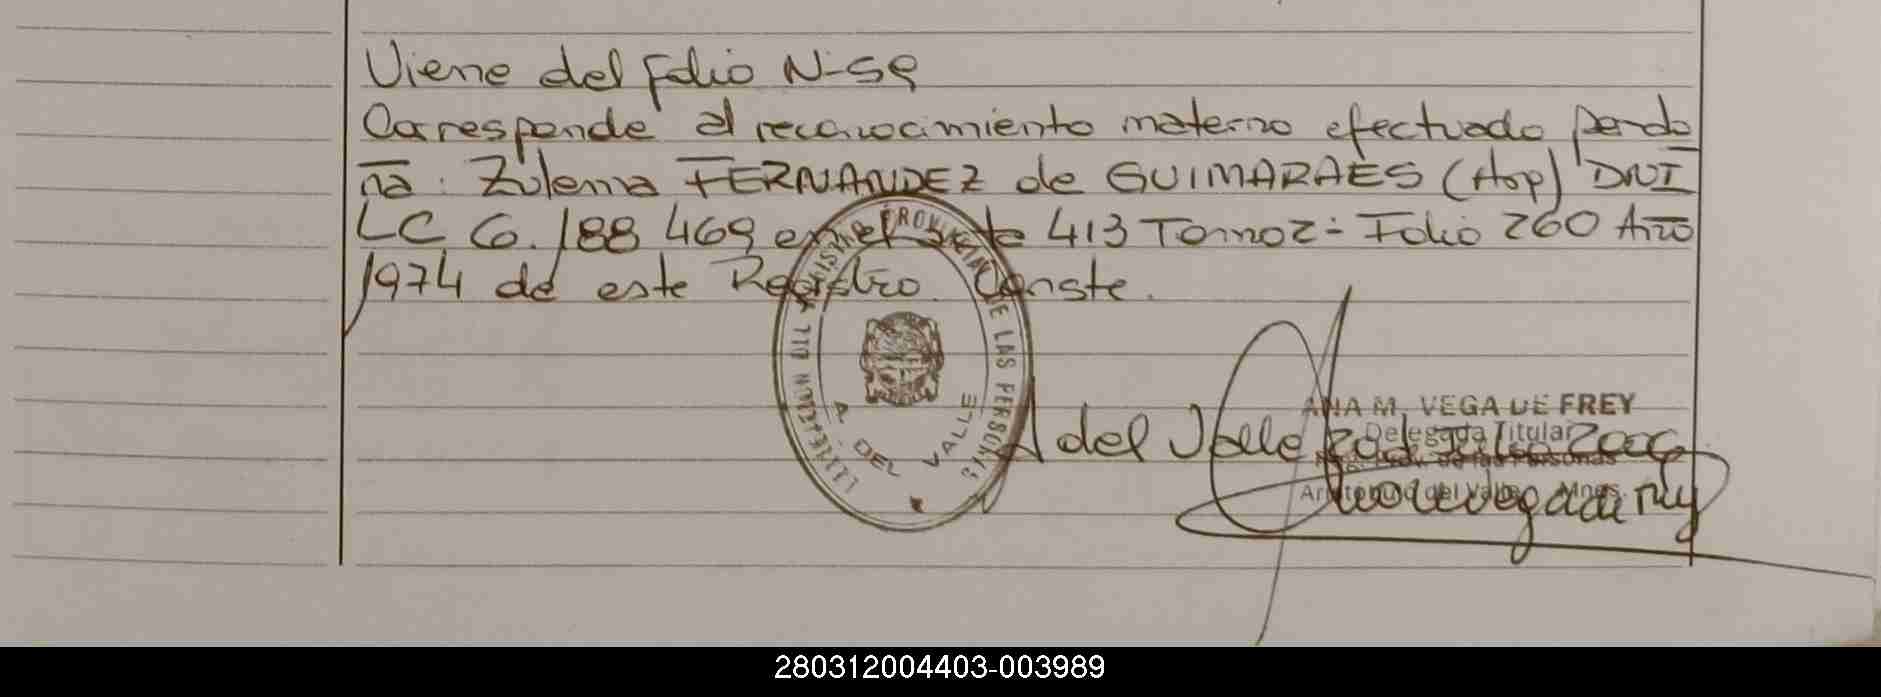 Viene del folio N-59
Corresponde al reconocimiento materno efectuado por do
ña: Zulema FERNANDEZ de GUIMARAES (Hop) DNI
LC 6.188469 en el acta 413 Tomo 2- Folio 260 Año
1974 de este Registro. Conste.
REGISTRO PROVINCIAL DE LAS PERSONAS
A. DEL VALLE
ANA M. VEGA DE FREY
Delegada Titular
Reg. Prov. de las Personas
Aristobulo del Valle Mnes.
A del Valle 20 de Julio
280312004403-003989